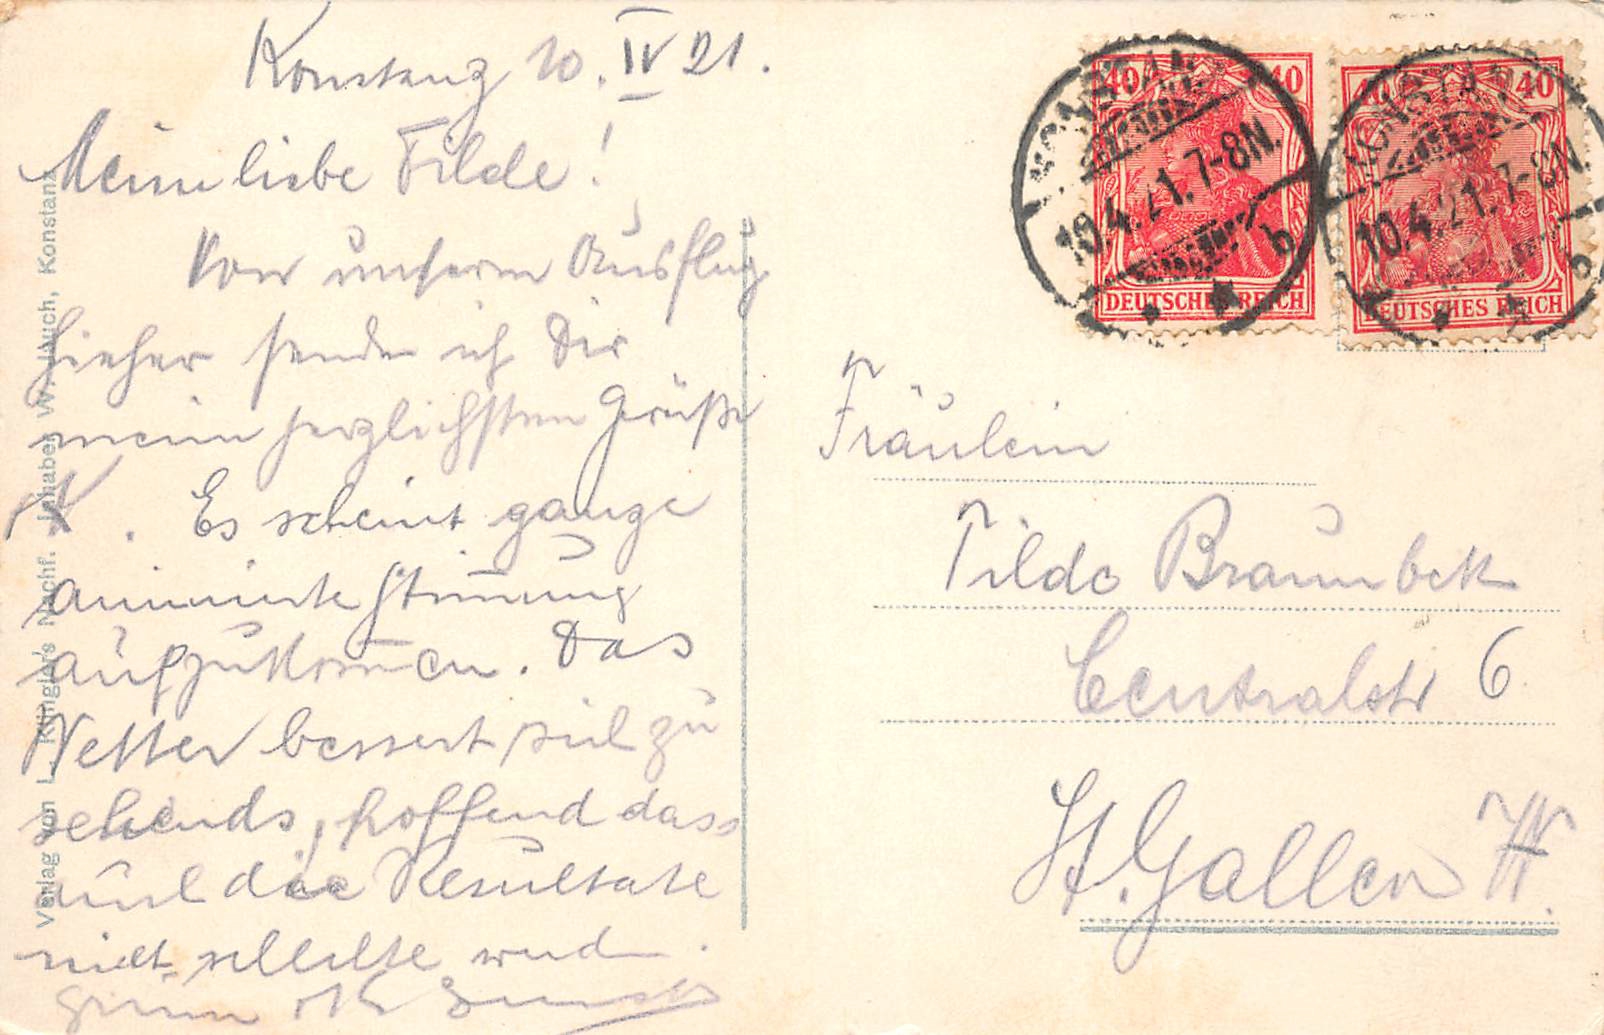 Konstanz 10. IV 21.
Meine liebe Tilde!
Von unserem Ausflug
hieher sende ich Dir
meine herzlichsten Grüße
Es scheint ganze
animierte Stimmung
aufzukommen. Das
Wetter bessert sich zu
sehends, hoffend dass
auch die Resultate
nicht schlechte werden.
Verlag von L. Klingler's Nachf. Inhaber W. Jauch, Konstanz
40 40
DEUTSCHES REICH
KONSTANZ
10.4.21.7-8N.
b
40 40
DEUTSCHES REICH
KONSTANZ
10.4.21.7-8N.
b
Fräulein
Tilde Braunbeck
Centralstr 6
St. Gallen W.